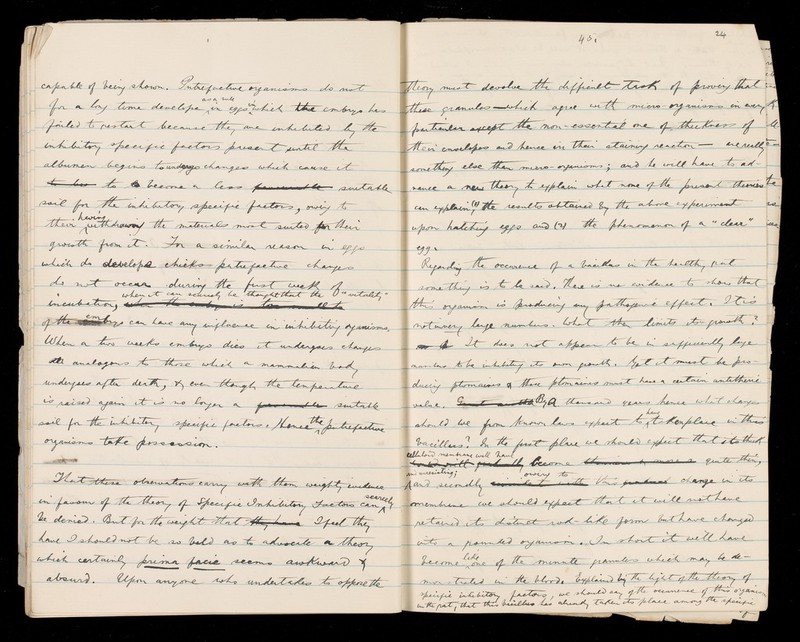 capable of being shown. Putrefactive organisms do not
for a long time develope as a rule in eggs in which the embryo has
failed to restart because they are inhibited by the
inhibitory specific factors present until the
albumen begins to undergo changes which cause it
to be to become a less favourable suitable
soil for the inhibitory specific factors, owing to
their having withdrawn the materials most suited for their
growth from it. For a similar reason in eggs
which do develope chicks putrefactive changes
do not occur during the first week of
incubation, when it can scarcely be thought that the "vitality"
of the embryo can have any influence in inhibiting organisms.
When a two weeks embryo dies it undergoes changes
analogous to those which a mammalian body
undergoes after death, & even though the temperature
is raised again it is no longer a favourable suitable
soil for the inhibitory specific factors. Hence the putrefactive
organisms take possession.
That these observations carry with them weighty evidence
in favour of the theory of Specific Inhibitory Factors can scarcely
be denied. But for the weight that they have I feel they
have I should not be so bold as to advocate a theory
which certainly prima facie seems awkward &
absurd. Upon anyone who undertakes to oppose the
45.
24
theory must devolve the difficult task of proving that
these granules—which agree with micro-organisms in every
particular except the non-essential one of thickness of
their envelopes and hence in their staining reaction— are really
something else than micro-organisms; and he will have to ad-
vance a new theory, to explain what none of the present theories
can explain, (1) the results obtained by the above experiment
upon hatching eggs and (2) the phenomenon of a "clear"
egg.
Regarding the occurrence of a bacillus in the healthy rat
something is to be said. There is no evidence to show that
this organism is producing any pathogenic effect. It is
not in very large numbers. What then limits its growth?
It does not appear to be in sufficiently large
numbers to be inhibiting its own growth. Yet it must be pro-
ducing ptomaines & those ptomaines must have a certain antitheric
value. By A thousand years hence what changes
should we from known laws expect to have taken place in this
bacillus? In the first place we should expect that its thick
celluloid membrane will have become quite thin,
and secondly owing to this gradual change in its
membrane we should expect that it will not have
retained its distinct rod-like form but have changed
into a rounded organism. In short it will have
become like one of the minute granules which may be de-
monstrated in the blood. Explained by the light of the theory of
specific inhibitory factors, we should say of the occurrence of this organism
in the rat, that this bacillus has already taken its place among the specific